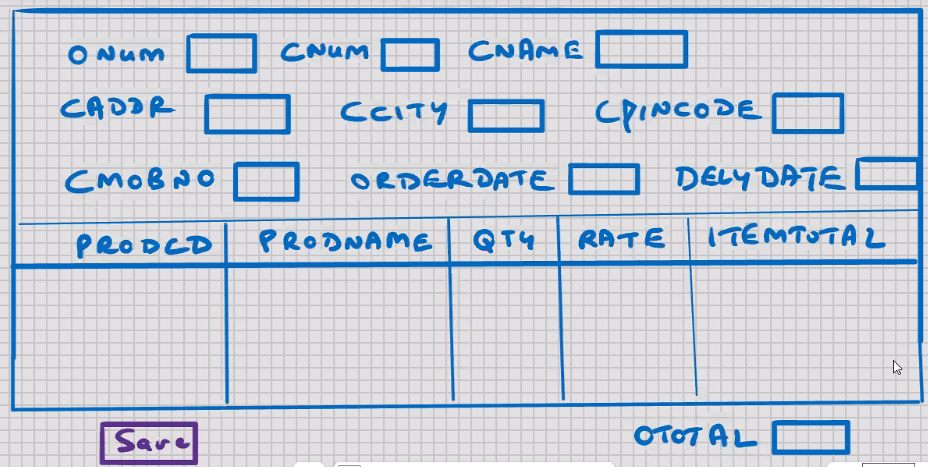 ONUM CNUM CNAME
CADDR CCITY CPINCODE
CMOBNO ORDERDATE DELYDATE
PRODCD PRODNAME QTY RATE ITEMTOTAL
Save OTOTAL